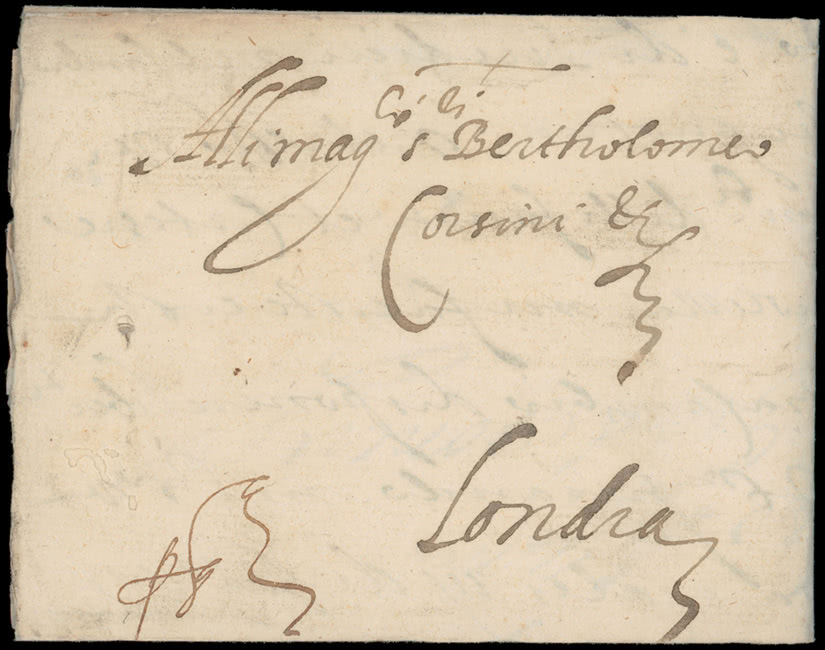 Alli mag^ci s^ri Bertholomeo
Corsini &
Londra